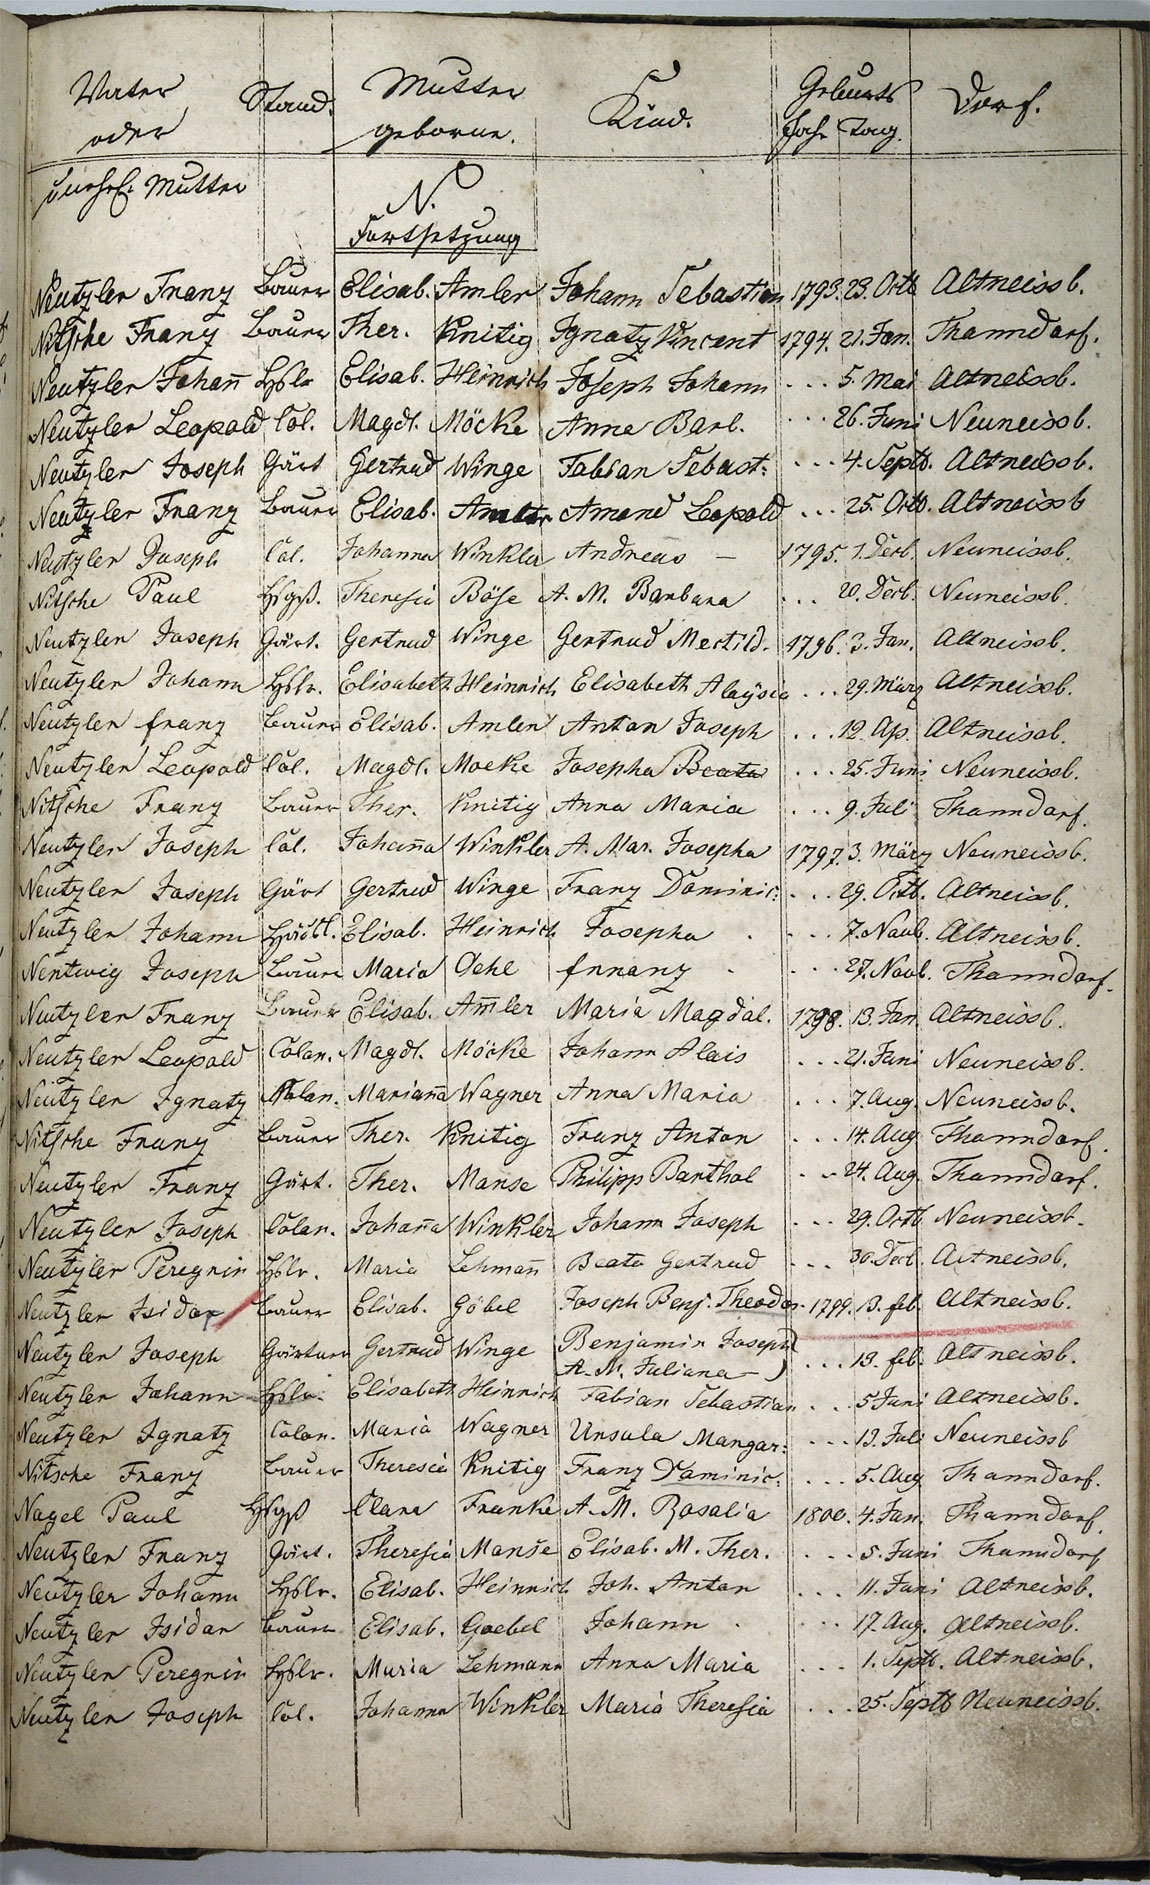 Vater Stand. Mutter Kind. Geburts Dorf.
oder geborne. Jahr Tag.
unehel. Mutter N.
Fortsetzung
Neutzler Franz Bauer Elisab. Amler Johann Sebastian 1793. 23. Octb Altneissb.
Nitsche Franz Bauer Ther. Knitig Ignatz Vincent 1794. 21. Jan. Thanndorf.
Neutzler Johann̄ Hslr Elisab. Heinrich Joseph Johann ... 5. Mai Altneissb.
Neutzler Leopold Col. Magdl. Möcke Anna Barb. ... 26. Juni Neuneissb.
Neutzler Joseph Gärt Gertrud Winge Fabian Sebast: ... 4. Septb. Altneissb.
Neutzler Franz Bauer Elisab. Amler Amand Leopold ... 25. Octb. Altneissb
Neutzler Joseph Col. Johanna Winkler Andreas — 1795. 1. Decb. Neuneissb.
Nitsche Paul Hsgß. Theresia Böse A. M. Barbara ... 20. Decb. Neuneissb.
Neutzler Joseph Gärt. Gertrud Winge Gertrud Mectild. 1796. 3. Jan. Altneissb.
Neutzler Johann Hslr. Elisabeth Heinrich Elisabeth Aloysia ... 29. März Altneissb.
Neutzler franz Bauer Elisab. Amler Anton Joseph ... 12. Ap. Altneissb.
Neutzler Leopold Col. Magdl. Moeke Josepha Beata ... 25. Juni Neuneissb.
Nitsche Franz Bauer Ther. Knitig Anna Maria ... 9. Juli Thanndorf.
Neutzler Joseph Col. Johan̄a Winkler A. Mar. Josepha 1797. 3. März Neuneissb.
Neutzler Joseph Gärt Gertrud Winge Franz Dominic: ... 29. Octb. Altneissb.
Neutzler Johann Elisab. Heinrich Josepha . ... 7. Novb. Altneissb.
Nentwig Joseph Bauer Maria Oehl franz . ... 27. Novb. Thanndorf.
Neutzler Franz Bauer Elisab. Am̄ler Maria Magdal. 1798. 13. Jan Altneissb.
Neutzler Leopold Colon. Magdl. Möcke Johann Alois ... 21. Juni Neuneissb.
Neutzler Ignatz Colon. Marian̄a Wagner Anna Maria ... 7. Aug. Neuneissb.
Nitsche Franz Bauer Ther. Knitig Franz Anton ... 14. Aug Thanndorf.
Neutzler Franz Gärt. Ther. Manse Philipp Barthol ... 24. Aug Thanndorf.
Neutzler Joseph Colon. Johan̄a Winkler Johann Joseph ... 29. Octb Neuneissb.
Neutzler Peregrin Hslr. Maria Lehman̄ Beata Gertrud ... 30. Decb. Altneissb.
Neutzler Isidor Bauer Elisab. Göbel Joseph Benj. Theodor 1799. 13. feb. Altneissb.
Neutzler Joseph Gärtner Gertrud Winge Benjamin Joseph ... 19. feb. Altneissb.
A. M. Juliana —)
Neutzler Johann Hslr. Elisabeth Heinrich Fabian Sebastian ... 5 Juni Altneissb.
Neutzler Ignatz Colon. Maria Wagner Ursula Margar: ... 13. Juli Neuneissb
Nitsche Franz Bauer Theresia Knitig Franz Dominic. ... 5. Aug Thanndorf.
Nagel Paul Hsgß Clara Franke A. M. Rosalia 1800. 4. Jan. Thanndorf.
Neutzler Franz Gärt. Theresia Manse Elisab. M. Ther. ... 5. Juni Thanndorf
Neutzler Johann Hslr. Elisab. Heinrich Joh. Anton ... 11. Juni Altneissb.
Neutzler Isidor Bauer Elisab. Goebel Johann . ... 17. Aug. Altneissb.
Neutzler Peregrin Hslr. Maria Lehmann Anna Maria ... 1. Septb. Altneissb.
Neutzler Joseph Col. Johanna Winkler Maria Theresia ... 25. Septb Neuneissb.